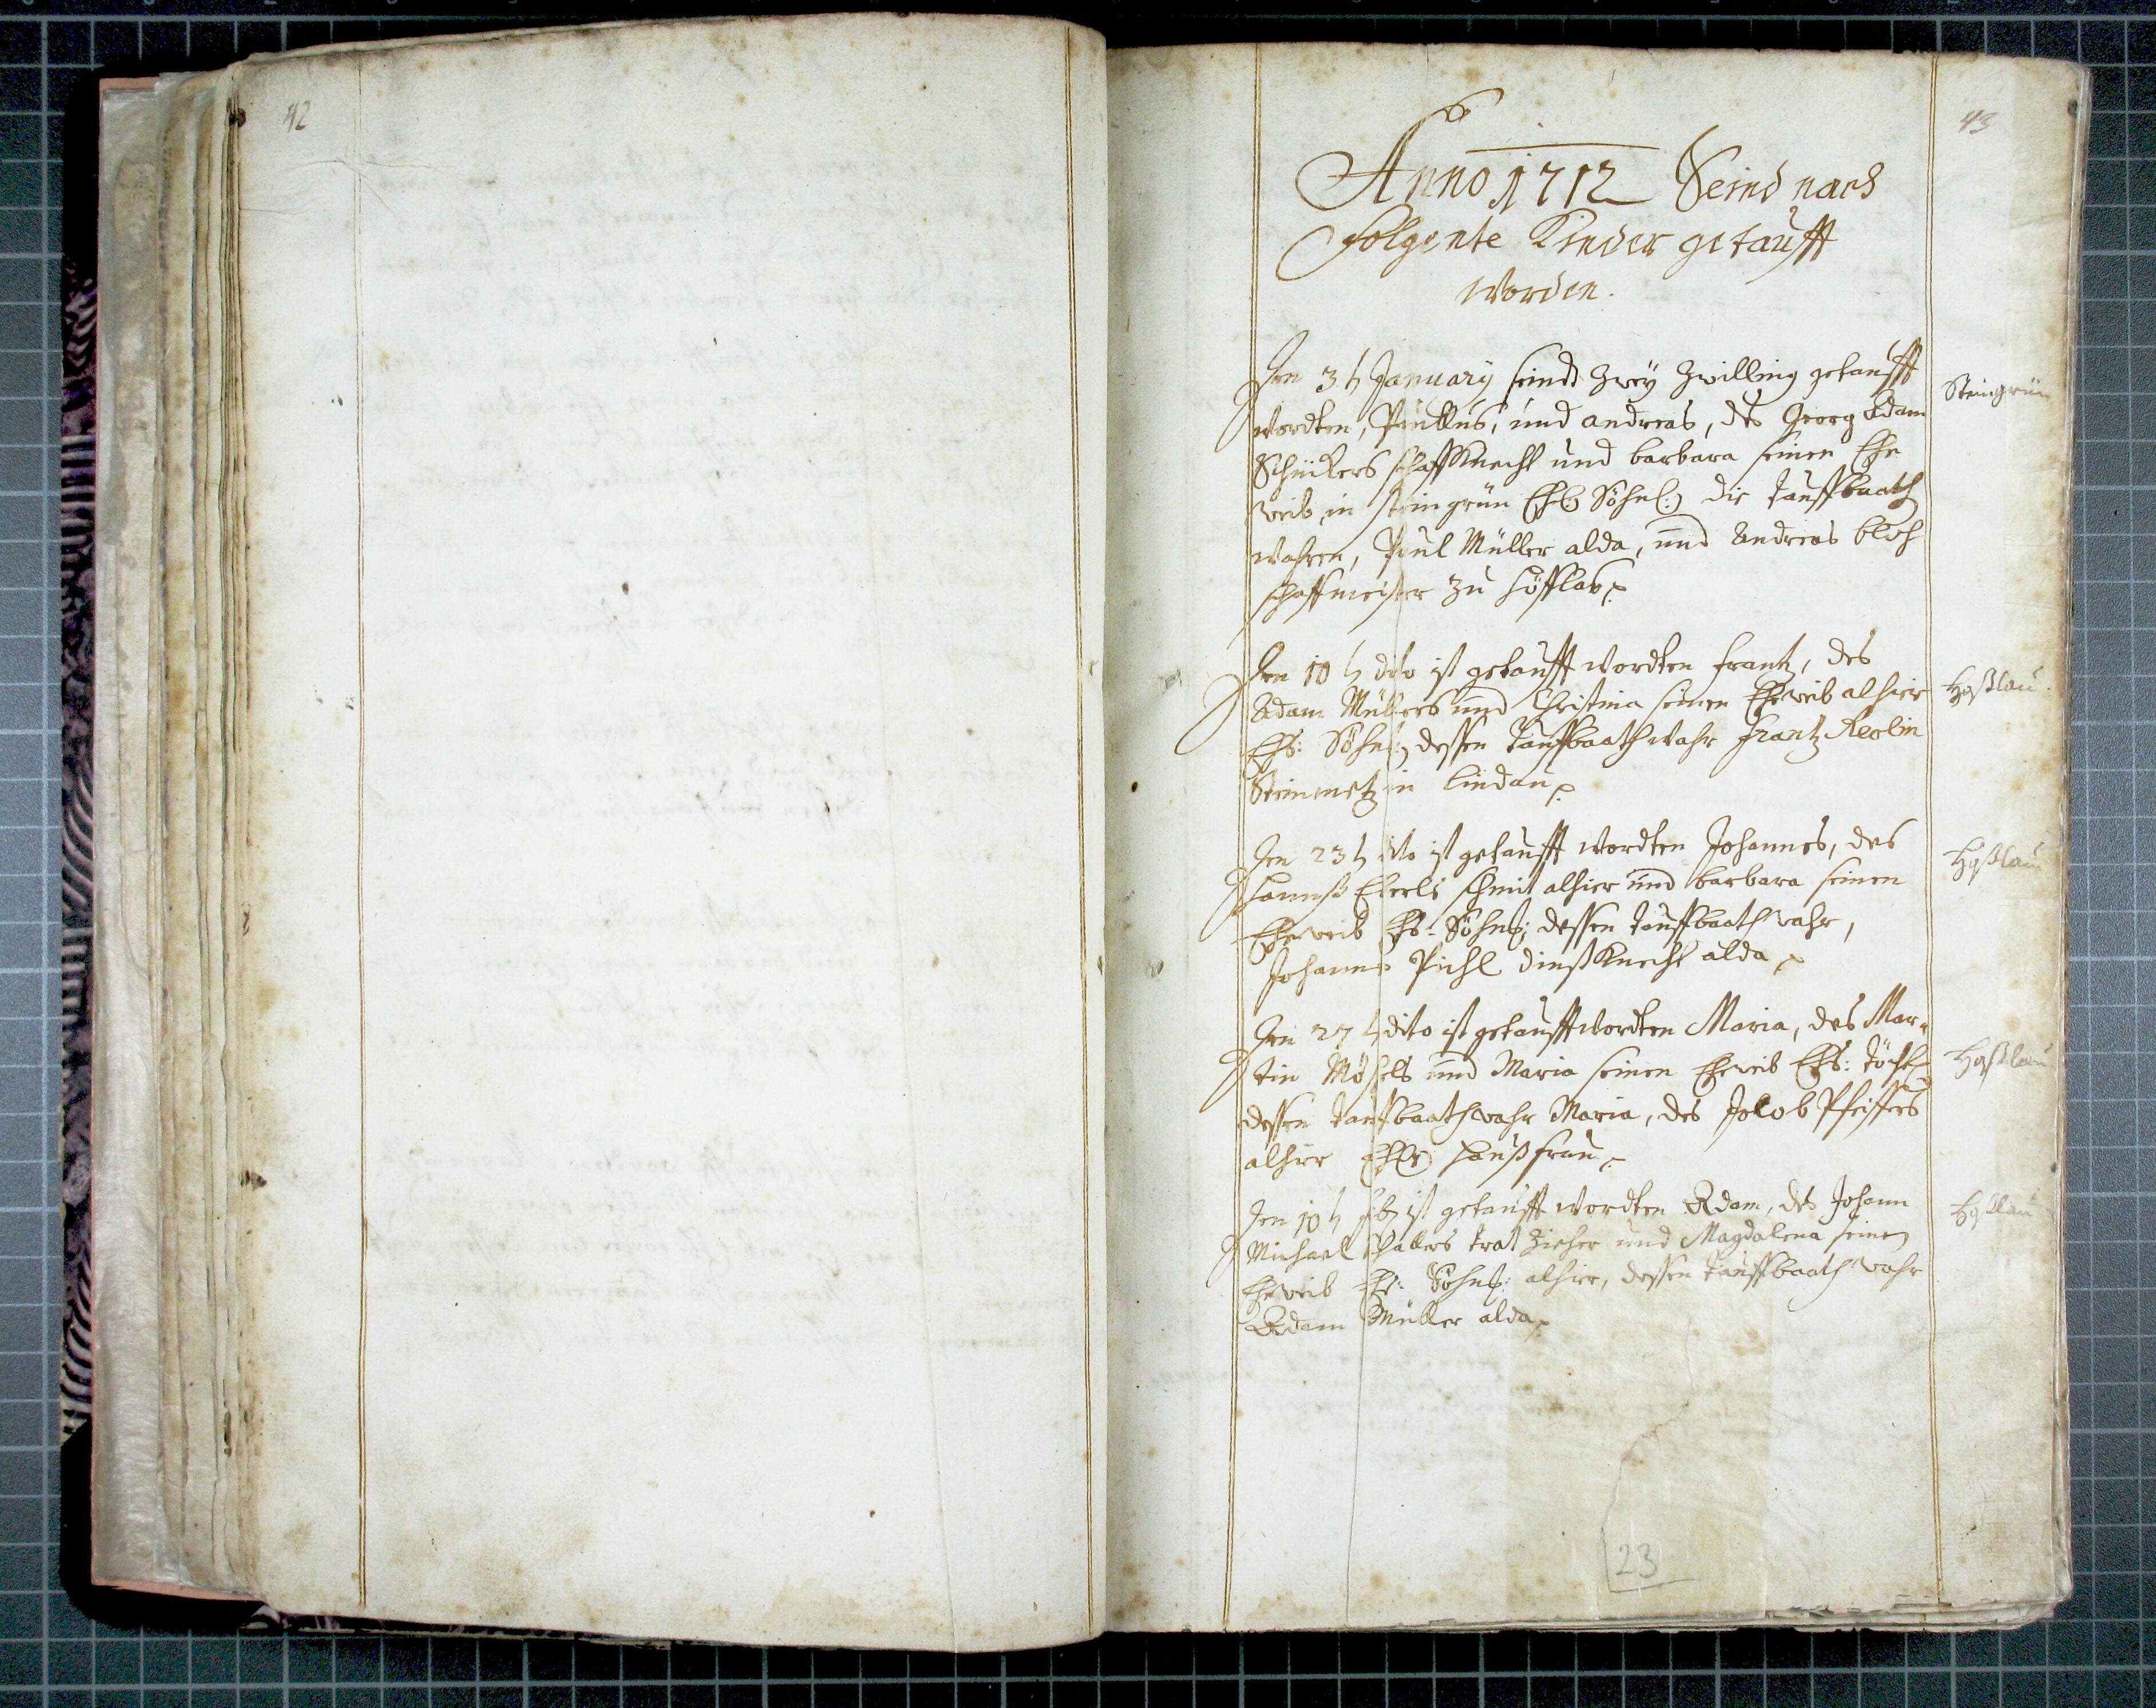 42
43
Anno 1712 Seind nach
folgente Kinder getaufft
worden.
Den 3t January seindt zwey Zwilling getaufft
wordten, Paullus, und Andreas, des Georg Adam
schaffKnecht und barbara seinen Ehe
weib in steingrün Ehl: Söhnl: die tauffbaath
wahren, Paul Müller alda, und Andreas
schaffmeister zu
Steingrün
Den 10t dito ist getaufft wordten frantz, des
Adam Müllers und Christina seinen Eheweib alhier
Ehl: Söhnl: dessen tauffbaath wahr frantz
Steinmetz in Lindau
Haßlau
Den 23t dito ist getaufft wordten Johannes, des
Hannß schmit alhier und barbara seinen
Eheweib Ehl: Söhnl: dessen tauffbaath wahr,
Johannes Pichl dinstKnecht alda
Haßlau
Den 27t dito ist getaufft wordten Maria, des Mar-
tin und Maria seinen Eheweib Ehl: töchtl
dessen tauffbaath wahr Maria, des Jocob Pfeiffers
alhier haußfrau
Haßlau
Den 10t ist getaufft wordten Adam, des Johann
Michael trat zieher und Magdalena seinen
Eheweib Ehl: Söhnl: alhier, dessen tauffbaath wahr
Adam Müller alda
Haßlau
23